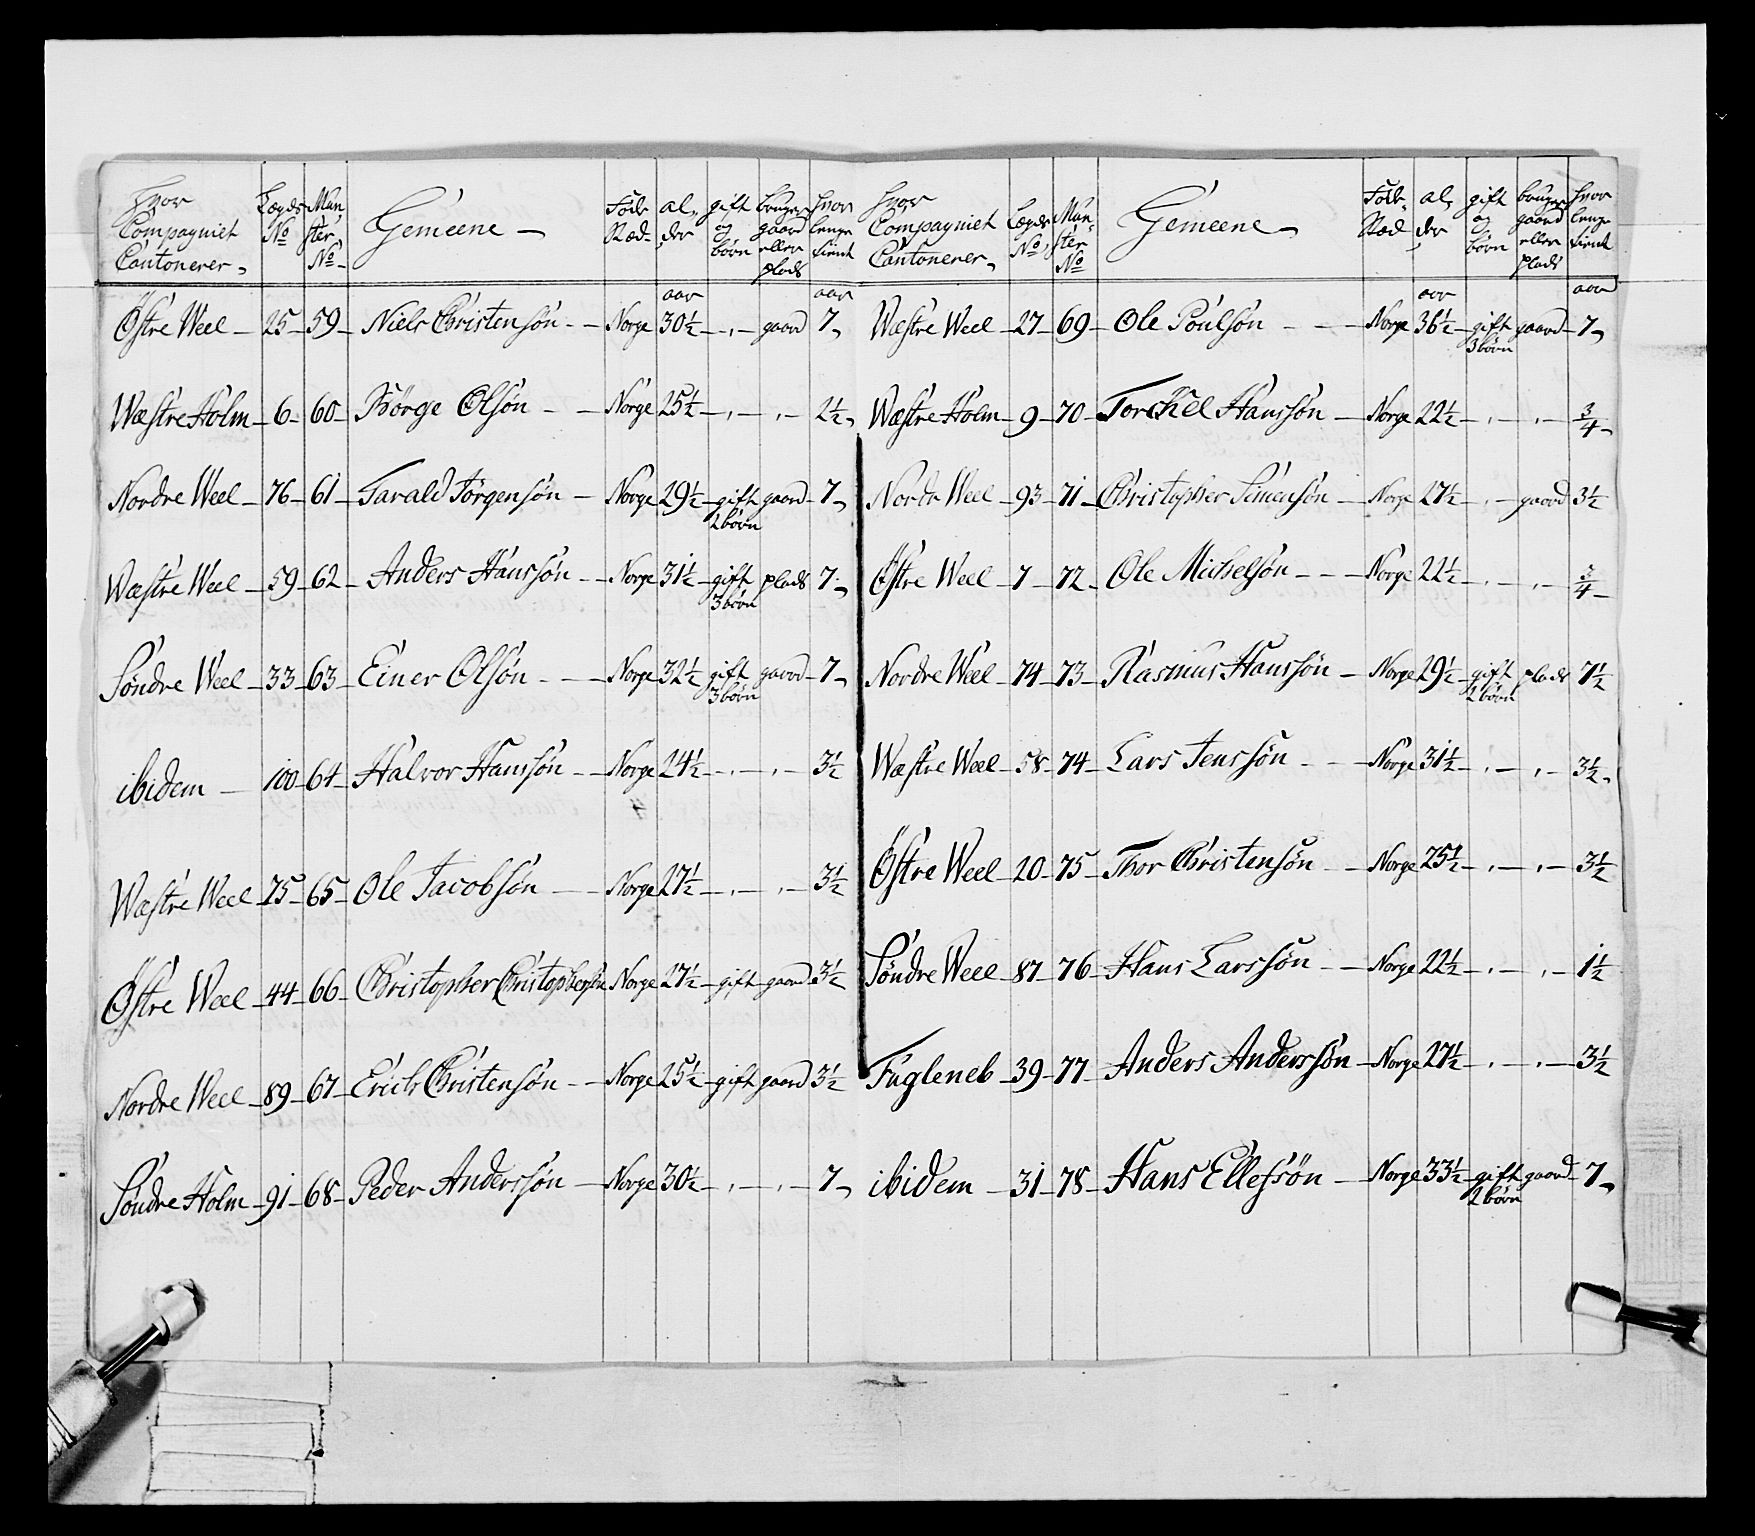 hvor Compagniet Cantonerer Lægds No Mün ster No Gemeene Föde Stæd al der gift og börn bruger gaard eller plads hvor lenge tient
aar aar
Östre Weel 25 59 Niels Christensön Norge 30½ gaard 7
Wæstre Holm 6 60 Börge Olsön Norge 25½ 2½
Nordre Weel 76 61 Tarald Jörgensön Norge 29½ gift gaard 7
2 börn
Wæstre Weel 59 62 Anders Hanssön Norge 31½ gift plads 7
3 börn
Söndre Weel 33 63 Einer Olsön Norge 32½ gift gaard 7
3 börn
ibidem 100 64 Halvor Hanssön Norge 24½ 3½
Wæstre Weel 75 65 Ole Jacobsön Norge 27½ 3½
Östre Weel 44 66 Christopher Christophersön Norge 27½ gift gaard 3½
Nordre Weel 89 67 Erich Christensön Norge 25½ gift gaard 3½
Söndre Holm 91 68 Peder Anderssön Norge 30½ 7
hvor Compagniet Cantonerer Lægds No Mün ster No Gemeene Föde Stæd al der gift og börn bruger gaard eller plads hvor lenge tient
aar aar
Wæstre Weel 27 69 Ole Poulsön Norge 36½ gift gaard 7
3 börn
Wæstre Holm 9 70 Torchel Hanssön Norge 22½ ¾
Nordr Weel 93 71 Christopher Simensön Norge 27½ gaard 3½
Östre Weel 7 72 Ole Michelsön Norge 22½ ¾
Nordre Weel 74 73 Rasmus Hanssön Norge 29½ gift plads 7½
2 börn
Wæstre Weel 58 74 Lars Jenssön Norge 31½ 3½
Östre Weel 20 75 Thor Christensön Norge 25½ 3½
Söndre Weel 87 76 Hans Larssön Norge 22½ 1½
Fugleneb 39 77 Anders Anderssön Norge 27½ 3½
ibidem 31 78 Hans Ellefsön Norge 33½ gift gaard 7
2 börn